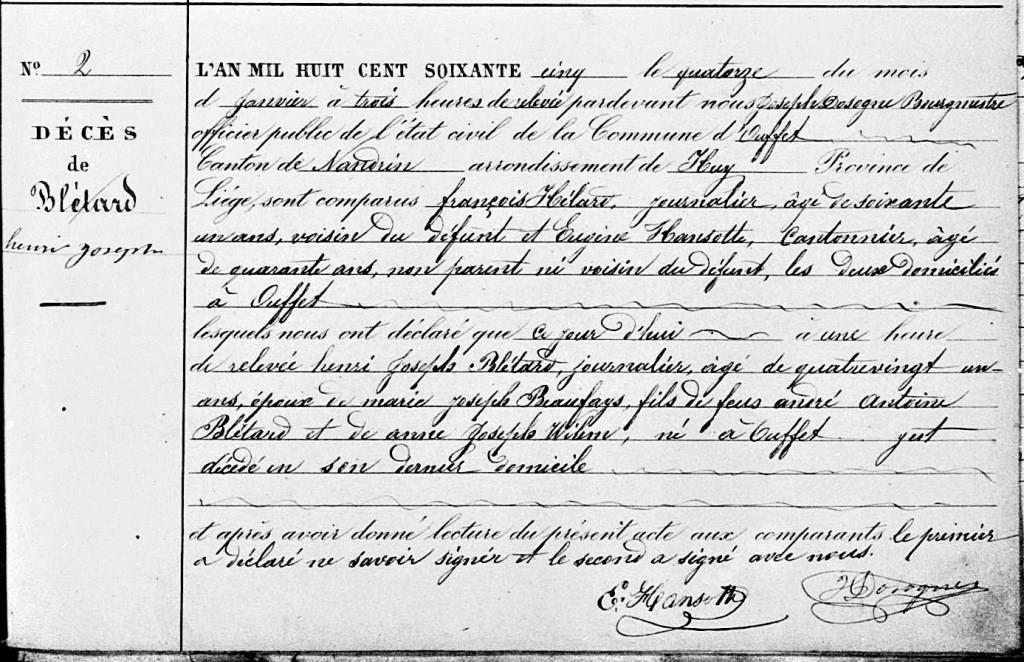 N° 2
DÉCÈS
de
Blétard
henri joseph
L'AN MIL HUIT CENT SOIXANTE cinq le quatorze du mois
d Janvier à trois heures de relevée pardevant nous Joseph Dosogne Bourgmestre
officier public de l'état civil de la Commune d'Ouffet
Canton de Nandrin arrondissement de Huy Province de
Liége, sont comparus françois Hélard, journalier, âgé de soixante
un ans, voisin du défunt et Eugène Hansotte, Cantonnier, âgé
de quarante ans, non parent ni voisin du défunt, les deux domiciliés
à Ouffet
lesquels nous ont déclaré que ce jour d'hui à une heure
de relevée henri Joseph Blétard, journalier, âgé de quatrevingt un
ans, époux de marie joseph Beaufays, fils de feus andré Antoine
Blétard et de anne Joseph Wilem, né à Ouffet y est
décédé en son dernier domicile
et après avoir donné lecture du présent acte aux comparants le premier
a déclaré ne savoir signer et le second a signé avec nous.
E. Hansotte
JDosogne